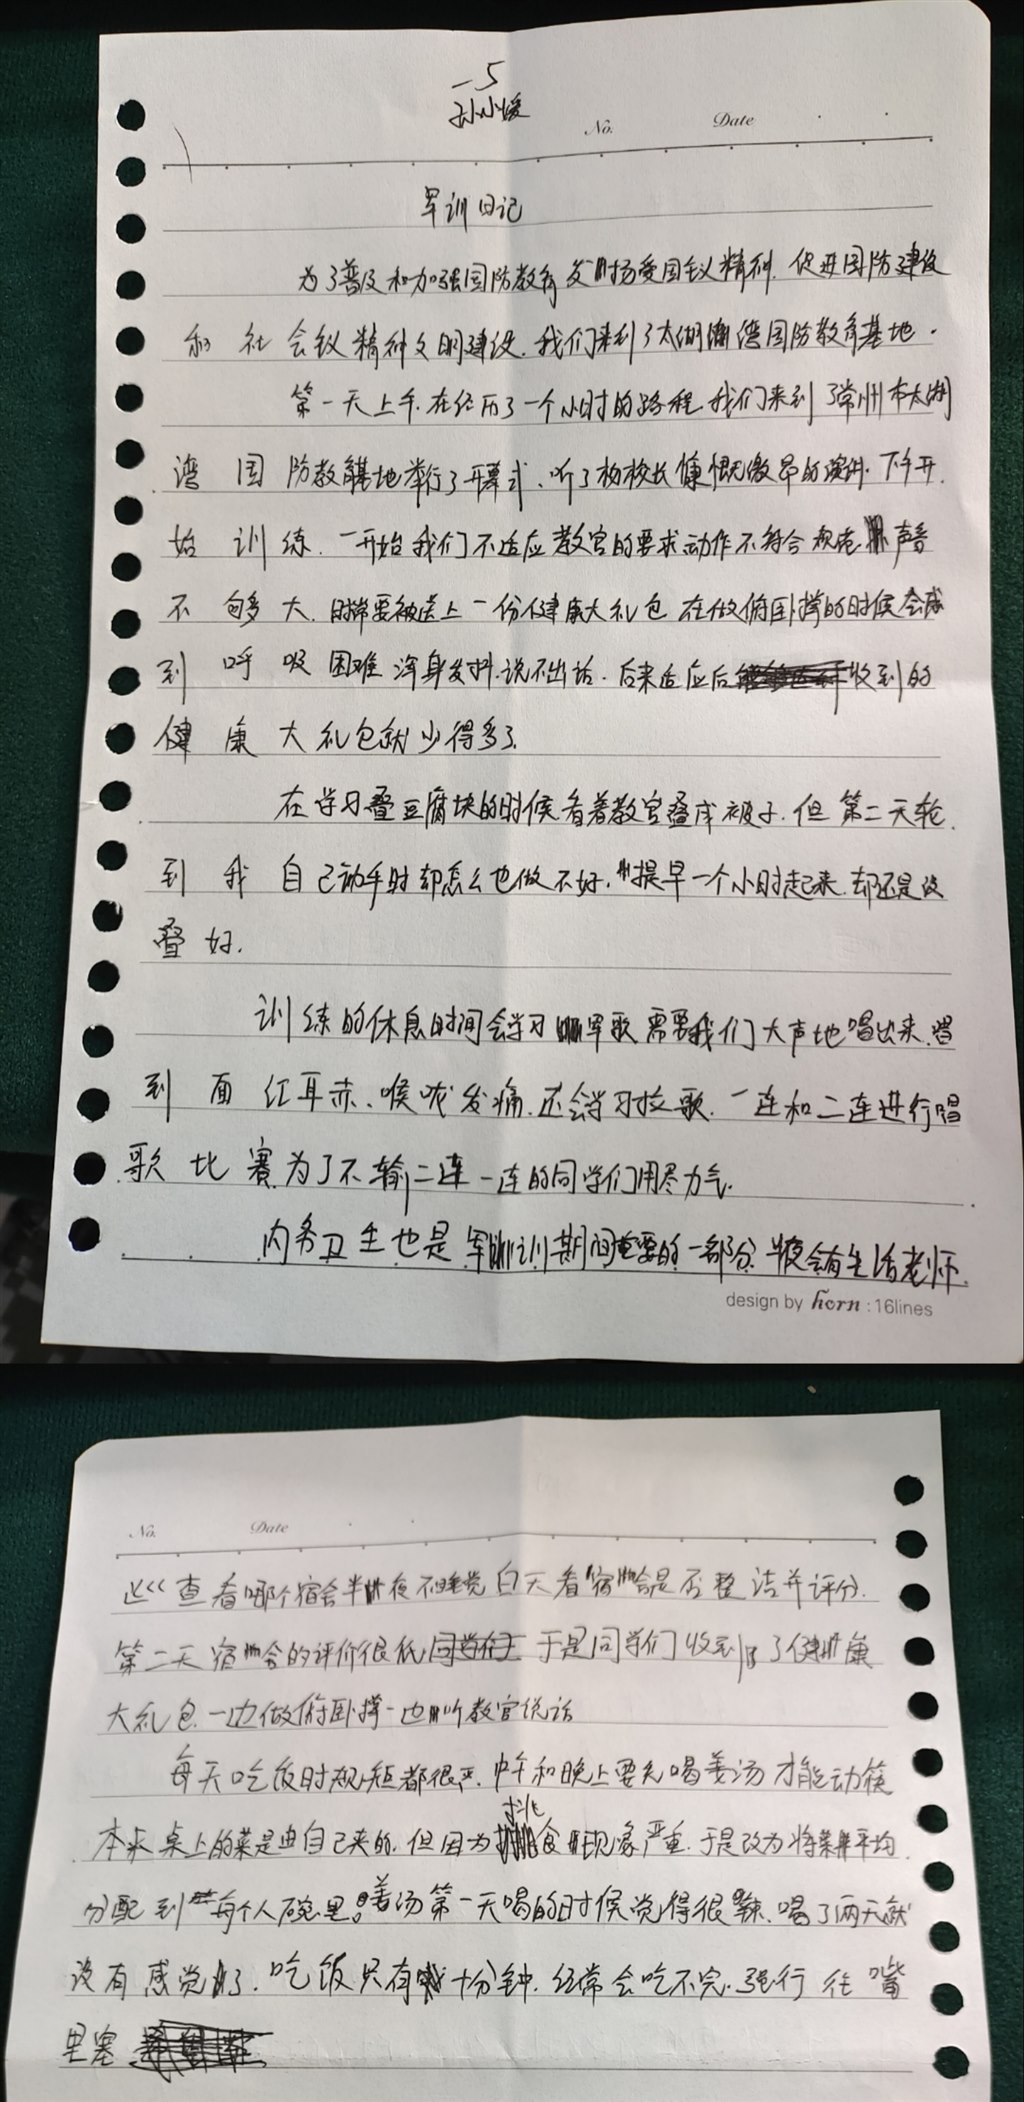 一5
孙小媛
No. Date
军训日记
为了普及和加强国防教育发扬爱国主义精神.促进国防建设
和社会主义精神文明建设.我们来到了太湖湾国防教育基地.
第一天上午.在经历了一个小时的路程.我们来到了常州市太湖
湾国防教育基地举行了开幕式、听了杨校长慷慨激昂的演讲.下午开
始训练.一开始我们不适应教官的要求动作不符合规范声音
不够大.时常要被送上一份健康大礼包 在做俯卧撑的时候会感
到呼吸困难 浑身发抖.说不出话.后来适应后收到的
健康大礼包就少得多了.
在学习叠豆腐块的时候.看着教官叠成被子.但第二天轮
到我自己动手时却怎么也做不好.提早一个小时起来.却还是没
叠好.
训练的休息时间会学习军歌需要我们大声地唱出来.唱
到面红耳赤、喉咙发痛.还会学习拉歌.一连和二连进行唱
歌比赛为了不输二连一连的同学们用尽力气.
内务卫生也是军训期间重要的一部分.半夜会有生活老师.
design by horn : 16lines
No. Date
查看哪个宿舍半夜不睡觉 白天看宿舍是否整洁并评分.
第二天宿舍的评价很低 于是同学们收到了健康
大礼包.一边做俯卧撑一边听教官说话
每天吃饭时规矩都很严.中午和晚上要先喝姜汤才能动筷
本来桌上的菜是由自己夹的.但因为挑食现象严重.于是改为将菜平均
分配到每个人碗里。姜汤第一天喝的时候觉得很辣.喝了两天就
没有感觉了.吃饭只有十分钟.经常会吃不完.强行往嘴
里塞